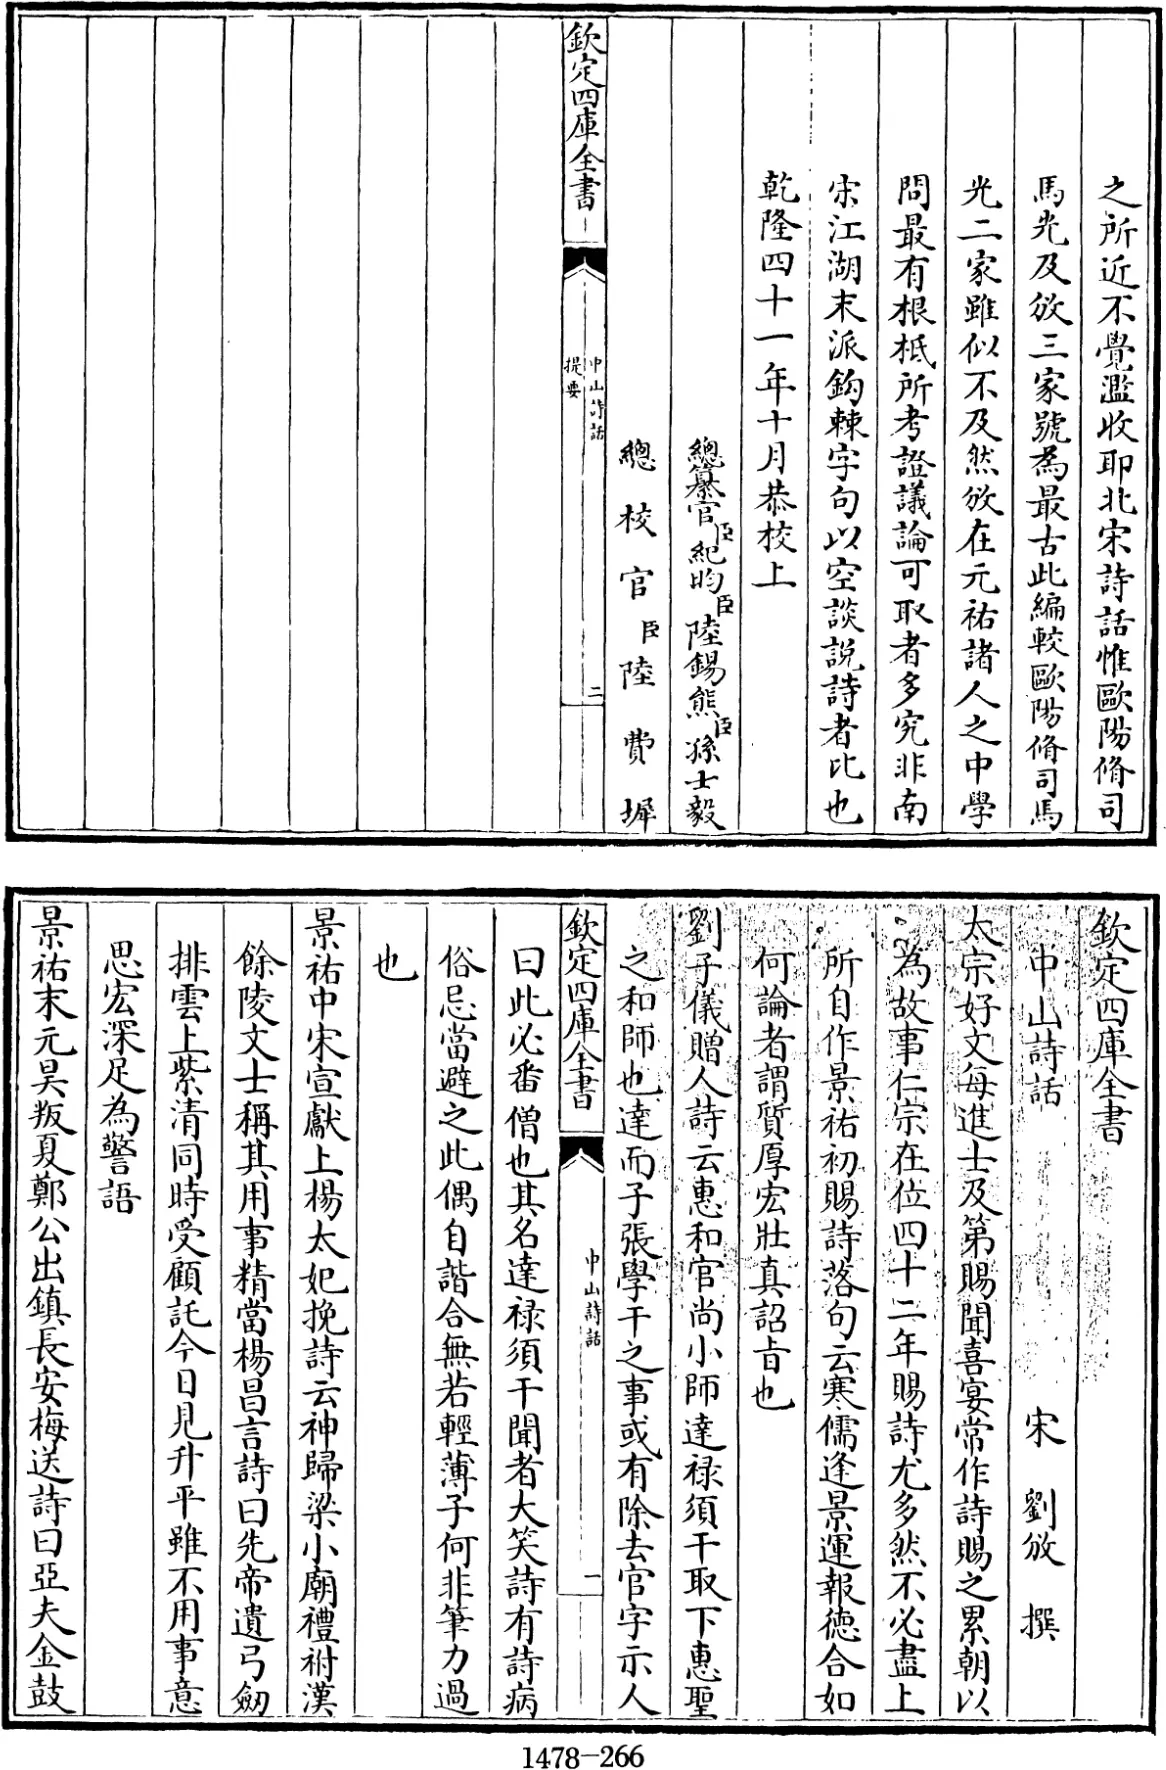 之所近不覺濫收耶北宋詩話惟歐陽脩司
馬光及攽三家號為最古此編較歐陽脩司馬
光二家雖似不及然攽在元祐諸人之中學
問最有根柢所考證議論可取者多究非南
宋江湖末派鈎棘字句以空談説詩者比也
乾隆四十一年十月恭校上
總纂官臣紀昀臣陸錫熊臣孫士毅
總校官臣陸費墀
欽定四庫全書
中山詩話
提要
二
欽定四庫全書
中山詩話
宋劉攽撰
太宗好文每進士及第賜聞喜宴常作詩賜之累朝以
為故事仁宗在位四十二年賜詩尤多然不必盡上
所自作景祐初賜詩落句云寒儒逢景運報德合如
何論者謂質厚宏壯真詔旨也
劉子儀贈人詩云惠和官尚小師達禄須干取下惠聖
之和師也達而子張學干之事或有除去官字示人
曰此必番僧也其名達禄須干聞者大笑詩有詩病
俗忌當避之此偶自諧合無若輕薄子何非筆力過
也
景祐中宋宣獻上楊太妃挽詩云神歸梁小廟禮祔漢
餘陵文士稱其用事精當楊昌言詩曰先帝遺弓劒
排雲上紫清同時受顧託今日見升平雖不用事意
思宏深足為警語
景祐末元昊叛夏鄭公出鎮長安梅送詩曰亞夫金鼓
欽定四庫全書
中山詩話
一
1478-266